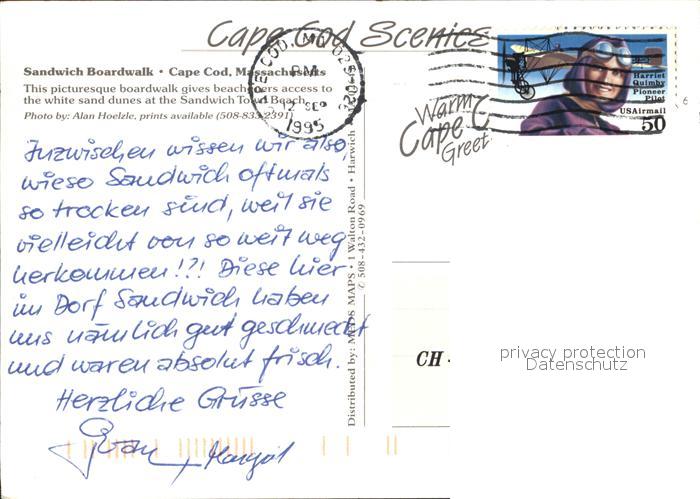 Cape Cod Scenics
Sandwich Boardwalk • Cape Cod, Massachusetts
This picturesque boardwalk gives beachgoers access to
the white sand dunes at the Sandwich Town Beach.
Photo by: Alan Hoelzle, prints available (508-833-2391)
CAPE COD, MA 025-026
PM
12 SEP
1995
Harriet
Quimby
Pioneer
Pilot
USAirmail
50
Warm
Cape C
Greet
Inzwischen wissen wir also,
wieso Sandwich oftmals
so trocken sind, weil sie
vielleicht von so weit weg
herkommen!?! Diese hier
im Dorf Sandwich haben
uns nämlich gut geschmeckt
und waren absolut frisch.
Herzliche Grüsse
+ Margrit
Distributed by: MAPS • 1 Walton Road • Harwich
508-432-0969
CH -
privacy protection
Datenschutz